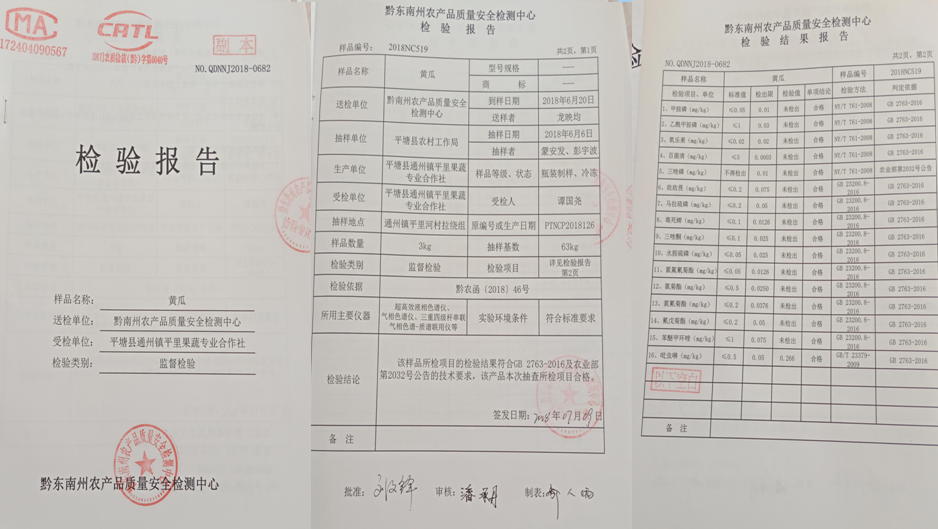 MA
172404090567
CATL
副本
NO.QDNNJ2018-0682
检验报告
样品名称: 黄瓜
送检单位: 黔南州农产品质量安全检测中心
受检单位: 平塘县通州镇平里果蔬专业合作社
检验类别: 监督检验
黔东南州农产品质量安全检测中心
黔东南州农产品质量安全检测中心
检 验 报 告
样品编号: 2018NC519
共2页，第1页
样品名称 黄瓜 型号规格 ——
商 标 ——
送检单位 黔南州农产品质量安全检测中心 到样日期 2018年6月20日
送样者 龙映均
抽样单位 平塘县农村工作局 抽样日期 2018年6月6日
抽样者 蒙安发、彭宇波
生产单位 平塘县通州镇平里果蔬专业合作社 样品等级、状态 瓶装制样、冷冻
受检单位 平塘县通州镇平里果蔬专业合作社 受检人 谭国尧
抽样地点 通州镇平里河村拉绕组 原编号或生产日期 PTNCP2018126
样品数量 3kg 抽样基数 63kg
检验类别 监督检验 检验项目 详见检验报告第2页
检验依据 黔农函〔2018〕46号
所用主要仪器 超高效液相色谱仪、气相色谱仪、三重四级杆串联气相色谱-质谱联用仪等 实验环境条件 符合标准要求
检验结论 该样品所检项目的检验结果符合GB 2763-2016及农业部
第2032号公告的技术要求，该产品本次抽查所检项目合格。
签发日期: 2018年07月09日
备 注
批准: 审核: 制表:
黔东南州农产品质量安全检测中心
检 验 结 果 报 告
共2页，第2页
NO.QDNNJ2018-0682
样品名称 黄瓜 样品编号 2018NC519
检验项目、单位 标准值 检出限 检验值 单项结论 检验方法 判定依据
1、甲胺磷（mg/kg） ≤0.05 0.01 未检出 合格 NY/T 761-2008 GB 2763-2016
2、乙酰甲胺磷（mg/kg） ≤1 0.03 未检出 合格 NY/T 761-2008 GB 2763-2016
3、氧乐果（mg/kg） ≤0.02 0.02 未检出 合格 NY/T 761-2008 GB 2763-2016
4、百菌清（mg/kg） ≤5 0.0003 未检出 合格 NY/T 761-2008 GB 2763-2016
5、三唑磷（mg/kg） 不得检出 0.01 未检出 合格 NY/T 761-2008 农业部第2032号公告
6、敌敌畏（mg/kg） ≤0.2 0.075 未检出 合格 GB 23200.8-2016 GB 2763-2016
7、马拉硫磷（mg/kg） ≤0.2 0.05 未检出 合格 GB 23200.8-2016 GB 2763-2016
8、毒死蜱（mg/kg） ≤0.1 0.0126 未检出 合格 GB 23200.8-2016 GB 2763-2016
9、三唑酮（mg/kg） ≤0.1 0.025 未检出 合格 GB 23200.8-2016 GB 2763-2016
10、水胺硫磷（mg/kg） ≤0.05 0.025 未检出 合格 GB 23200.8-2016 GB 2763-2016
11、氯氟氰菊酯（mg/kg） ≤0.05 0.0126 未检出 合格 GB 23200.8-2016 GB 2763-2016
12、氯菊酯（mg/kg） ≤0.5 0.0250 未检出 合格 GB 23200.8-2016 GB 2763-2016
13、氯氰菊酯（mg/kg） ≤0.2 0.0376 未检出 合格 GB 23200.8-2016 GB 2763-2016
14、氰戊菊酯（mg/kg） ≤0.2 0.05 未检出 合格 GB 23200.8-2016 GB 2763-2016
15、苯醚甲环唑（mg/kg） ≤1 0.075 未检出 合格 GB 23200.8-2016 GB 2763-2016
16、吡虫啉（mg/kg） ≤0.5 0.05 0.266 合格 GB/T 23379-2009 GB 2763-2016
以下空白
备 注